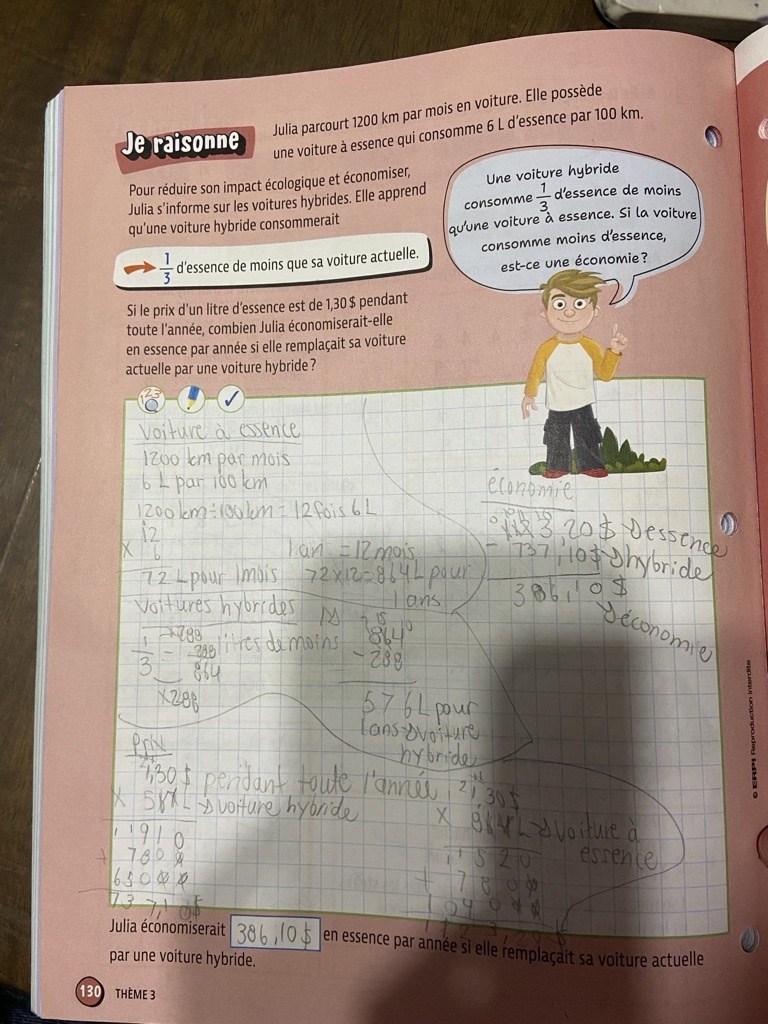 Je raisonne
Julia parcourt 1200 km par mois en voiture. Elle possède
une voiture à essence qui consomme 6 L d'essence par 100 km.
Pour réduire son impact écologique et économiser,
Julia s'informe sur les voitures hybrides. Elle apprend
qu'une voiture hybride consommerait
1/3 d'essence de moins que sa voiture actuelle.
Une voiture hybride
consomme 1/3 d'essence de moins
qu'une voiture à essence. Si la voiture
consomme moins d'essence,
est-ce une économie ?
Si le prix d'un litre d'essence est de 1,30 $ pendant
toute l'année, combien Julia économiserait-elle
en essence par année si elle remplaçait sa voiture
actuelle par une voiture hybride ?
123
Voiture à essence
1200 km par mois
6 L par 100 km
1200 km ÷ 100 km = 12 fois 6 L
12
x 6
72 L pour 1 mois
1 an = 12 mois
72 x 12 = 864 L pour
1 ans
Voitures hybrides
x288
1/3 = 288/864 litres de moins
x288
864
- 288
576 L pour
1 ans voiture
hybride
économie
1123,20 $ essence
- 737,10 $ hybride
386,10 $
économie
Prix
1,30 $ pendant toute l'année
voiture hybride
1910
+ 7800
65000
737,10 $
1,30 $
x 864 L voiture à
essence
520
+ 7800
104000
Julia économiserait 386,10 $ en essence par année si elle remplaçait sa voiture actuelle
par une voiture hybride.
130 THÈME 3
© ERPI Reproduction interdite